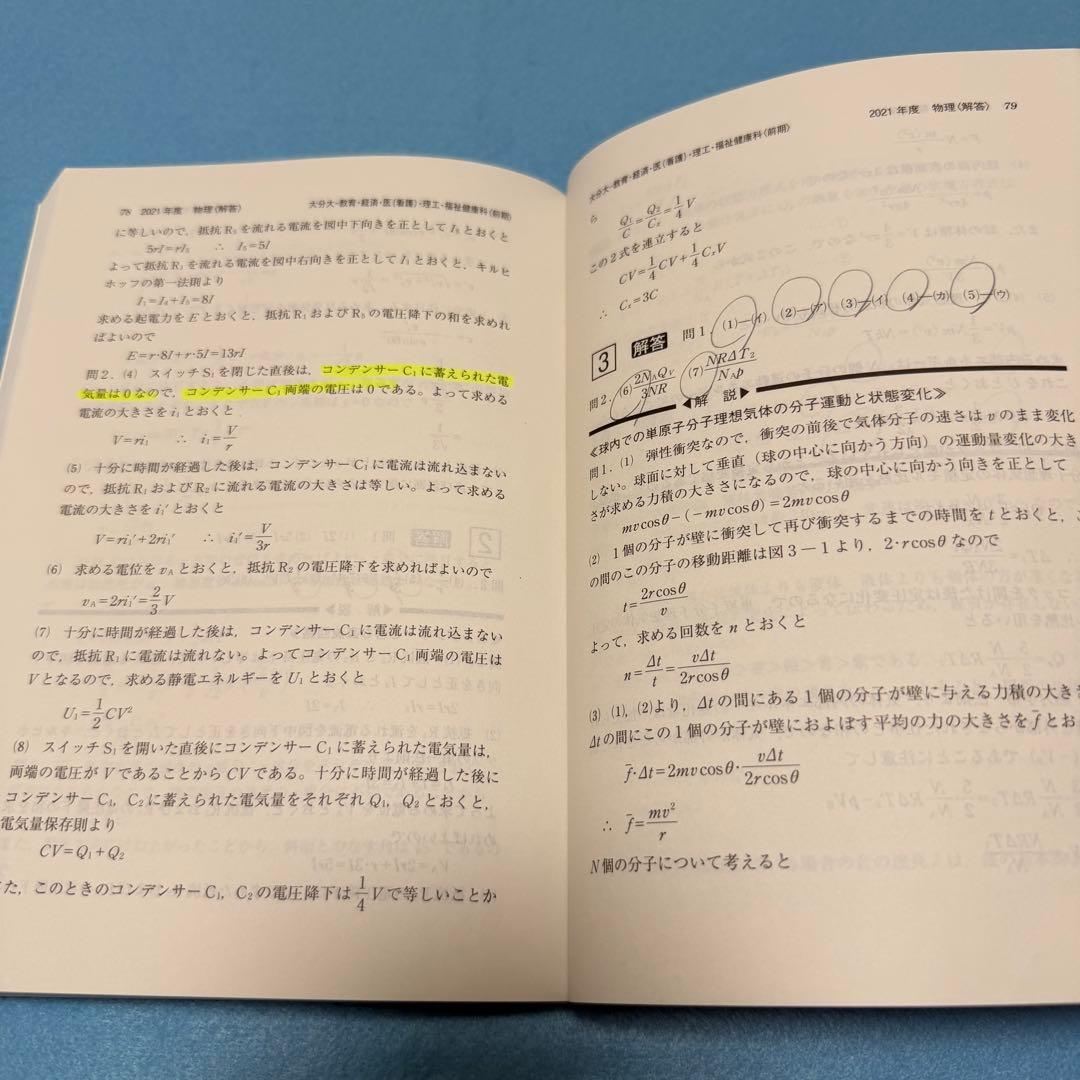 78 2021年度 物理〈解答〉 大分大-教育・経済・医(看護)・理工・福祉健康科〈前期〉
に等しいので，抵抗R₅を流れる電流を図中下向きを正としてI₅とおくと
5rI=rI₅ ∴ I₅=5I
よって抵抗R₁を流れる電流を図中右向きを正としてI₁とおくと，キルヒ
ホッフの第一法則より
I₁=I₄+I₅=8I
求める起電力をEとおくと，抵抗R₁およびR₅の電圧降下の和を求めれ
ばよいので
E=r·8I+r·5I=13rI
問2．(4) スイッチS₁を閉じた直後は，コンデンサーC₁に蓄えられた電
気量は0なので，コンデンサーC₁両端の電圧は0である。よって求める
電流の大きさをi₁とおくと
V=ri₁ ∴ i₁=V/r
(5) 十分に時間が経過した後は，コンデンサーC₁に電流は流れ込まない
ので，抵抗R₁およびR₂に流れる電流の大きさは等しい。よって求める
電流の大きさをi₁′とおくと
V=ri₁′+2ri₁′ ∴ i₁′=V/3r
(6) 求める電位をv_Aとおくと，抵抗R₂の電圧降下を求めればよいので
v_A=2ri₁′=2/3 V
(7) 十分に時間が経過した後は，コンデンサーC₁に電流は流れ込まない
ので，抵抗R₁に電流は流れない。よってコンデンサーC₁両端の電圧は
Vとなるので，求める静電エネルギーをU₁とおくと
U₁=1/2 CV²
(8) スイッチS₁を開いた直後にコンデンサーC₁に蓄えられた電気量は，
両端の電圧がVであることからCVである。十分に時間が経過した後に
コンデンサーC₁，C₂に蓄えられた電気量をそれぞれQ₁，Q₂とおくと，
電気量保存則より
CV=Q₁+Q₂
た，このときのコンデンサーC₁，C₂の電圧降下は1/4 Vで等しいことか
大分大-教育・経済・医(看護)・理工・福祉健康科〈前期〉 2021年度 物理〈解答〉 79
ら
Q₁/C=Q₂/Cₓ=1/4 V
この2式を連立すると
CV=1/4 CV+1/4 CₓV
∴ Cₓ=3C
3 解答 問1．(1)—(イ) (2)—(ア) (3)—(イ) (4)—(カ) (5)—(ウ)
問2．(6) 2N_AQ_V/3NR (7) NRΔT₂/N_Ap
◀解 説▶
≪球内での単原子分子理想気体の分子運動と状態変化≫
問1．(1) 弾性衝突なので，衝突の前後で気体分子の速さはvのまま変化
しない。球面に対して垂直（球の中心に向かう方向）の運動量変化の大き
さが求める力積の大きさになるので，球の中心に向かう向きを正として
mvcosθ−(−mvcosθ)=2mvcosθ
(2) 1個の分子が壁に衝突して再び衝突するまでの時間をtとおくと，こ
の間のこの分子の移動距離は図3－1より，2·rcosθなので
t=2rcosθ/v
よって，求める回数をnとおくと
n=Δt/t=vΔt/2rcosθ
(3) (1)，(2)より，Δtの間にある1個の分子が壁に与える力積の大き
Δtの間にこの1個の分子が壁におよぼす平均の力の大きさをf̄とお
f̄·Δt=2mvcosθ·vΔt/2rcosθ
∴ f̄=mv²/r
N個の分子について考えると